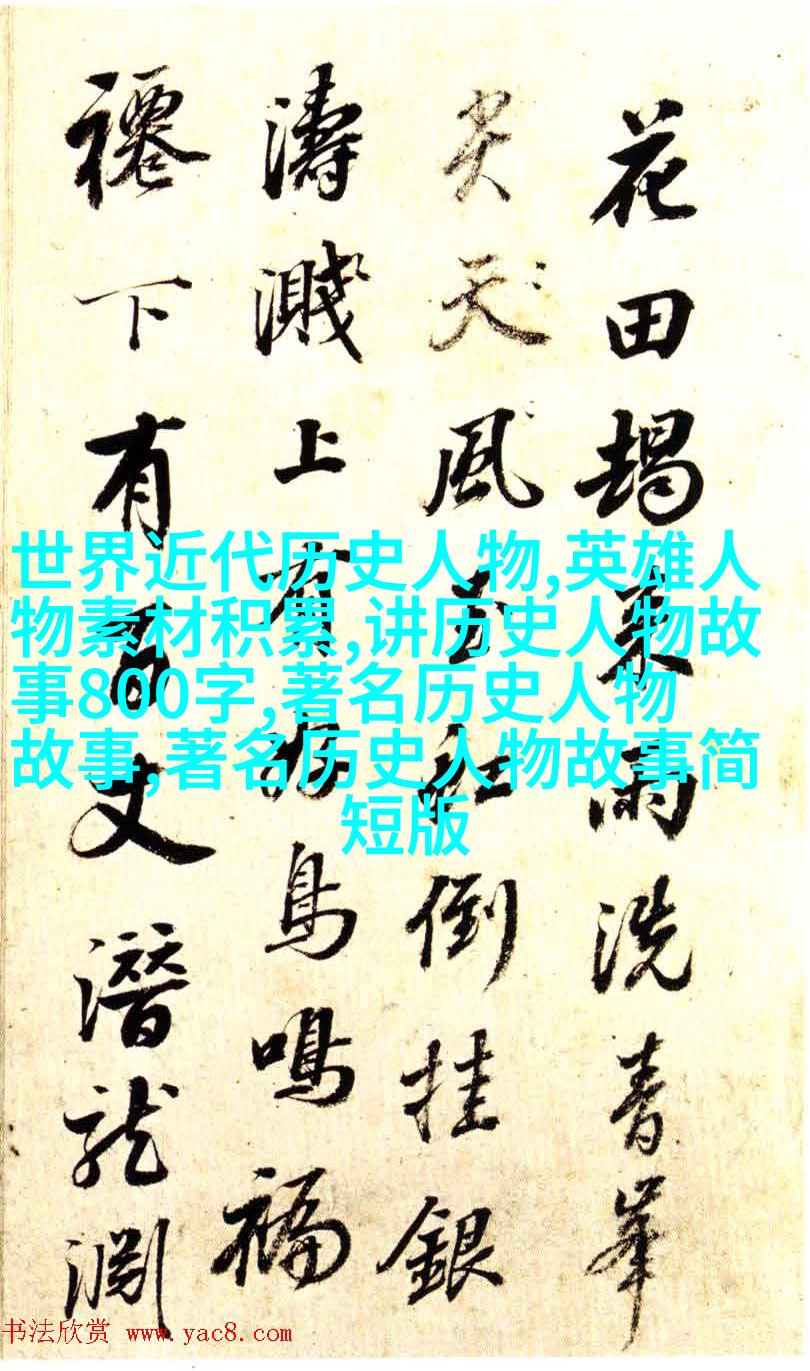 花田朅来雨洗青峯
尖天風吹紅倒挂銀
濤濺上有水鳥鳴福
禯下有百丈潛龍淵
世界近代历史人物,英雄人
物素材积累,讲历史人物故
事800字,著名历史人物
故事,著名历史人物故事简
短版
书法欣赏 www.yac8.com